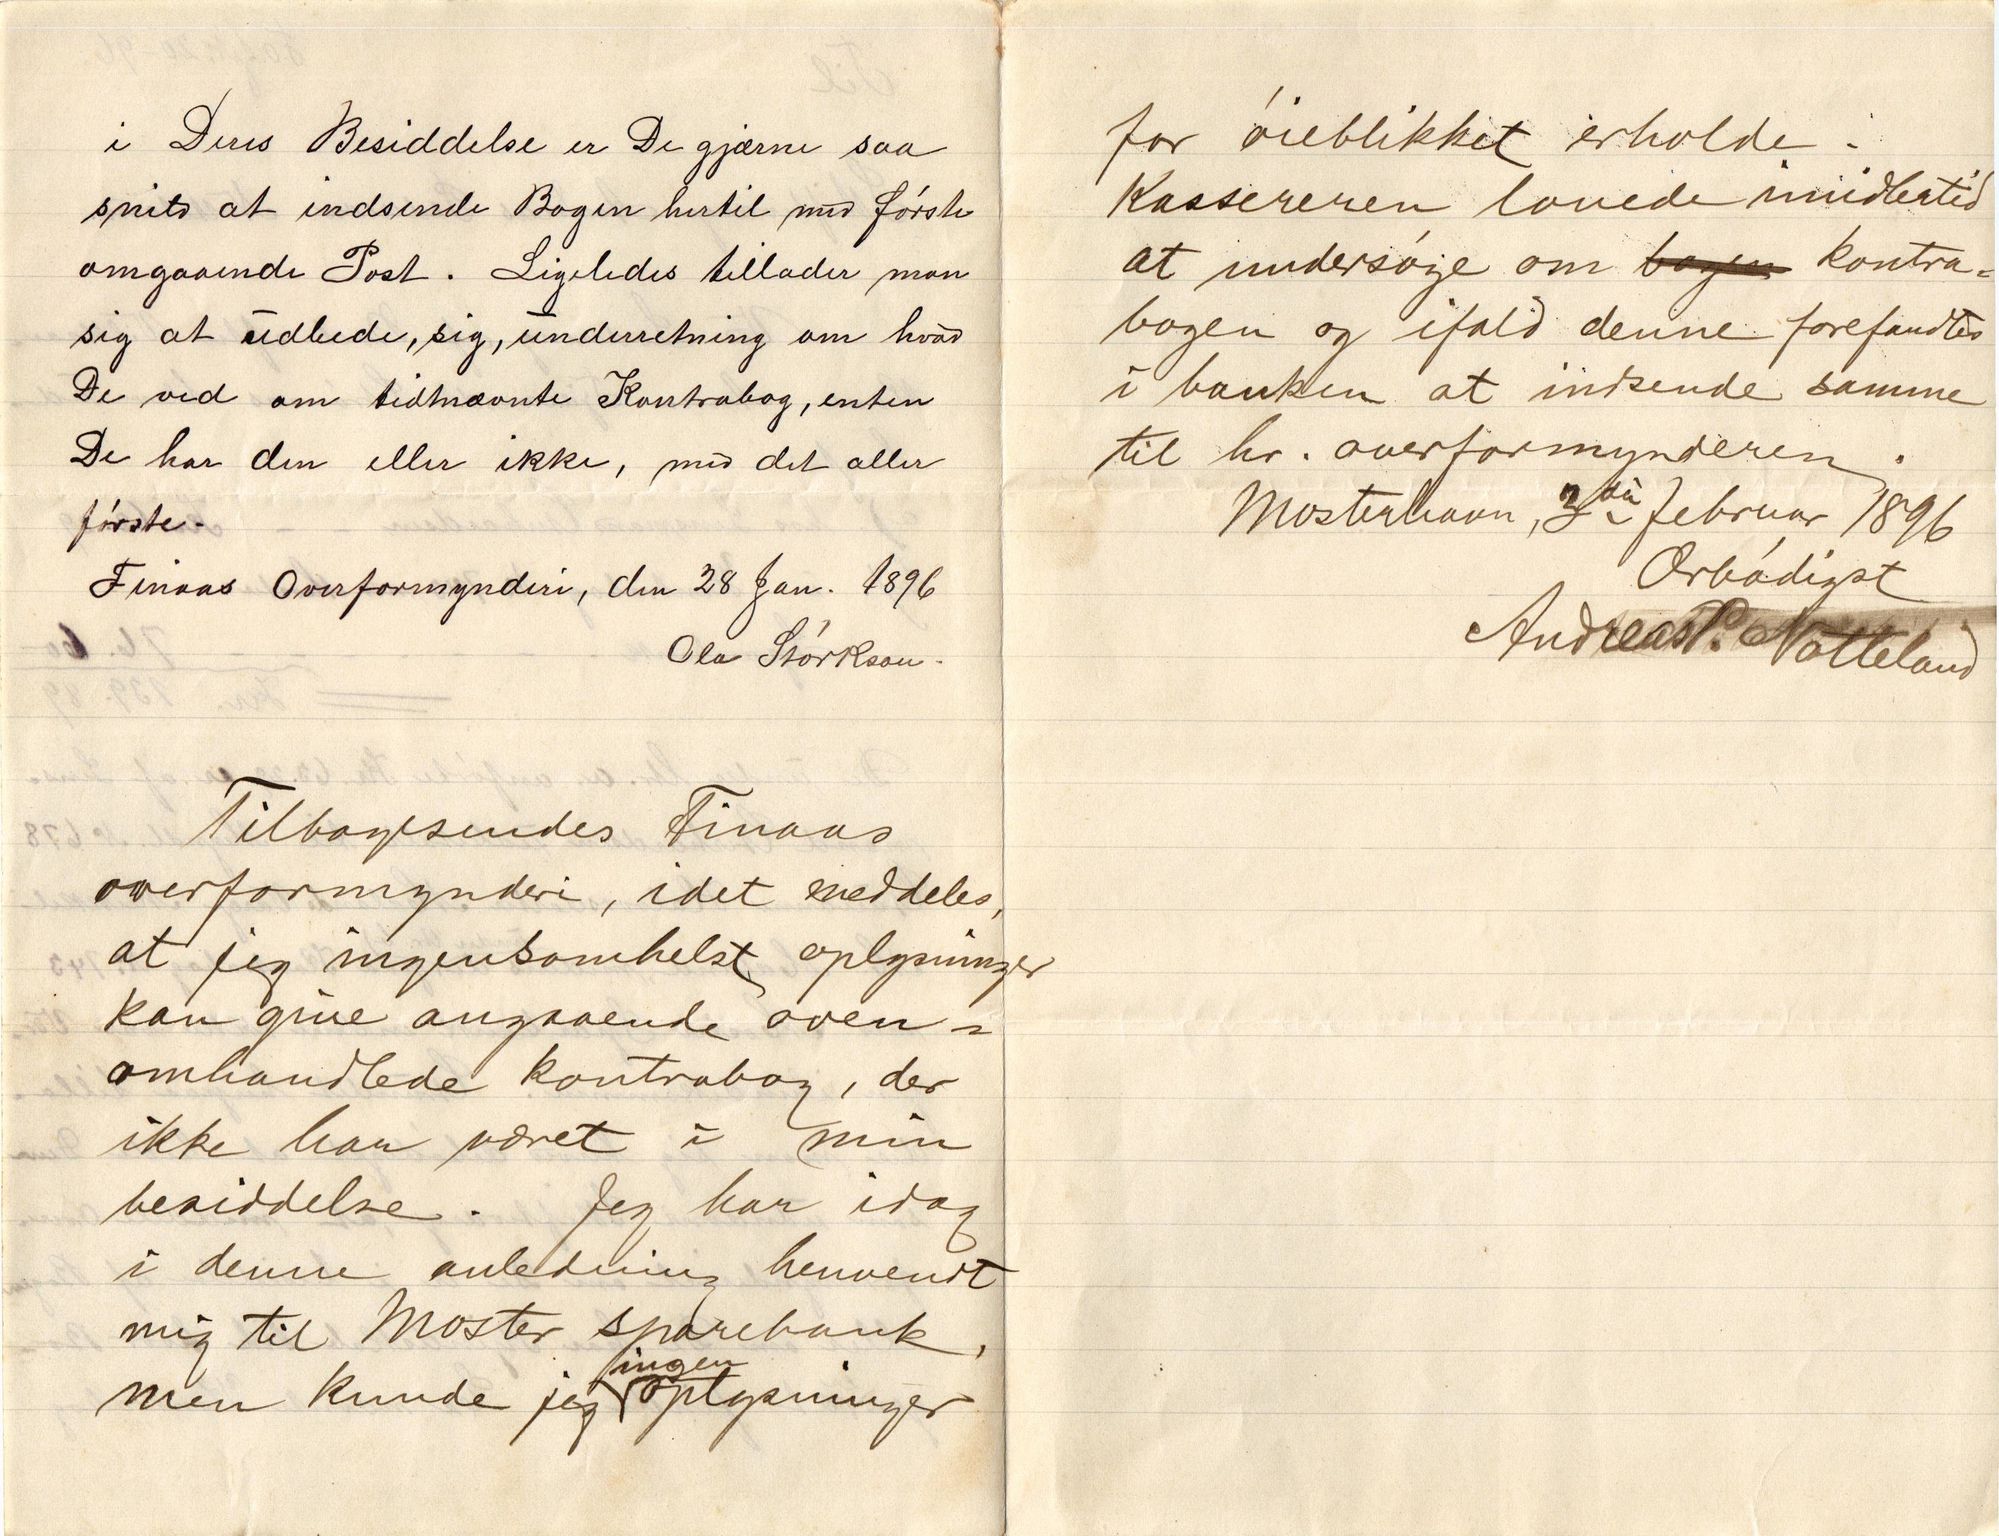 i Deres Besiddelse er De gjærne saa
snild at indsende Bogen hertil med første
omgaaende Post. Ligeledes tillader man
sig at udbede, sig, underretning om hvad
De ved om tidtnævnte Kontrabog, enten
De har den eller ikke, med det aller
første.
Finaas Overformynderi, den 28 Jan. 1896
Ola Størkson.
Tilbagesendes Finaas
overformynderi, idet meddeles,
at jeg ingensomhelst oplysninger
kan give angaaende oven-
omhandlede kontrabog, der
ikke har været i min
besiddelse. Jeg har idag
i denne anledning henvendt
mig til Moster sparebank,
men kunde jeg ingen oplysninger
for øieblikket erholde.
Kassereren lovede imidlertid
at undersøge om bogen kontra-
bogen og ifald denne forefandtes
i banken at indsende samme
til hr. overformynderen.
Mosterhavn, 3die februar 1896
Ærbødigst
Andreas P. Notteland